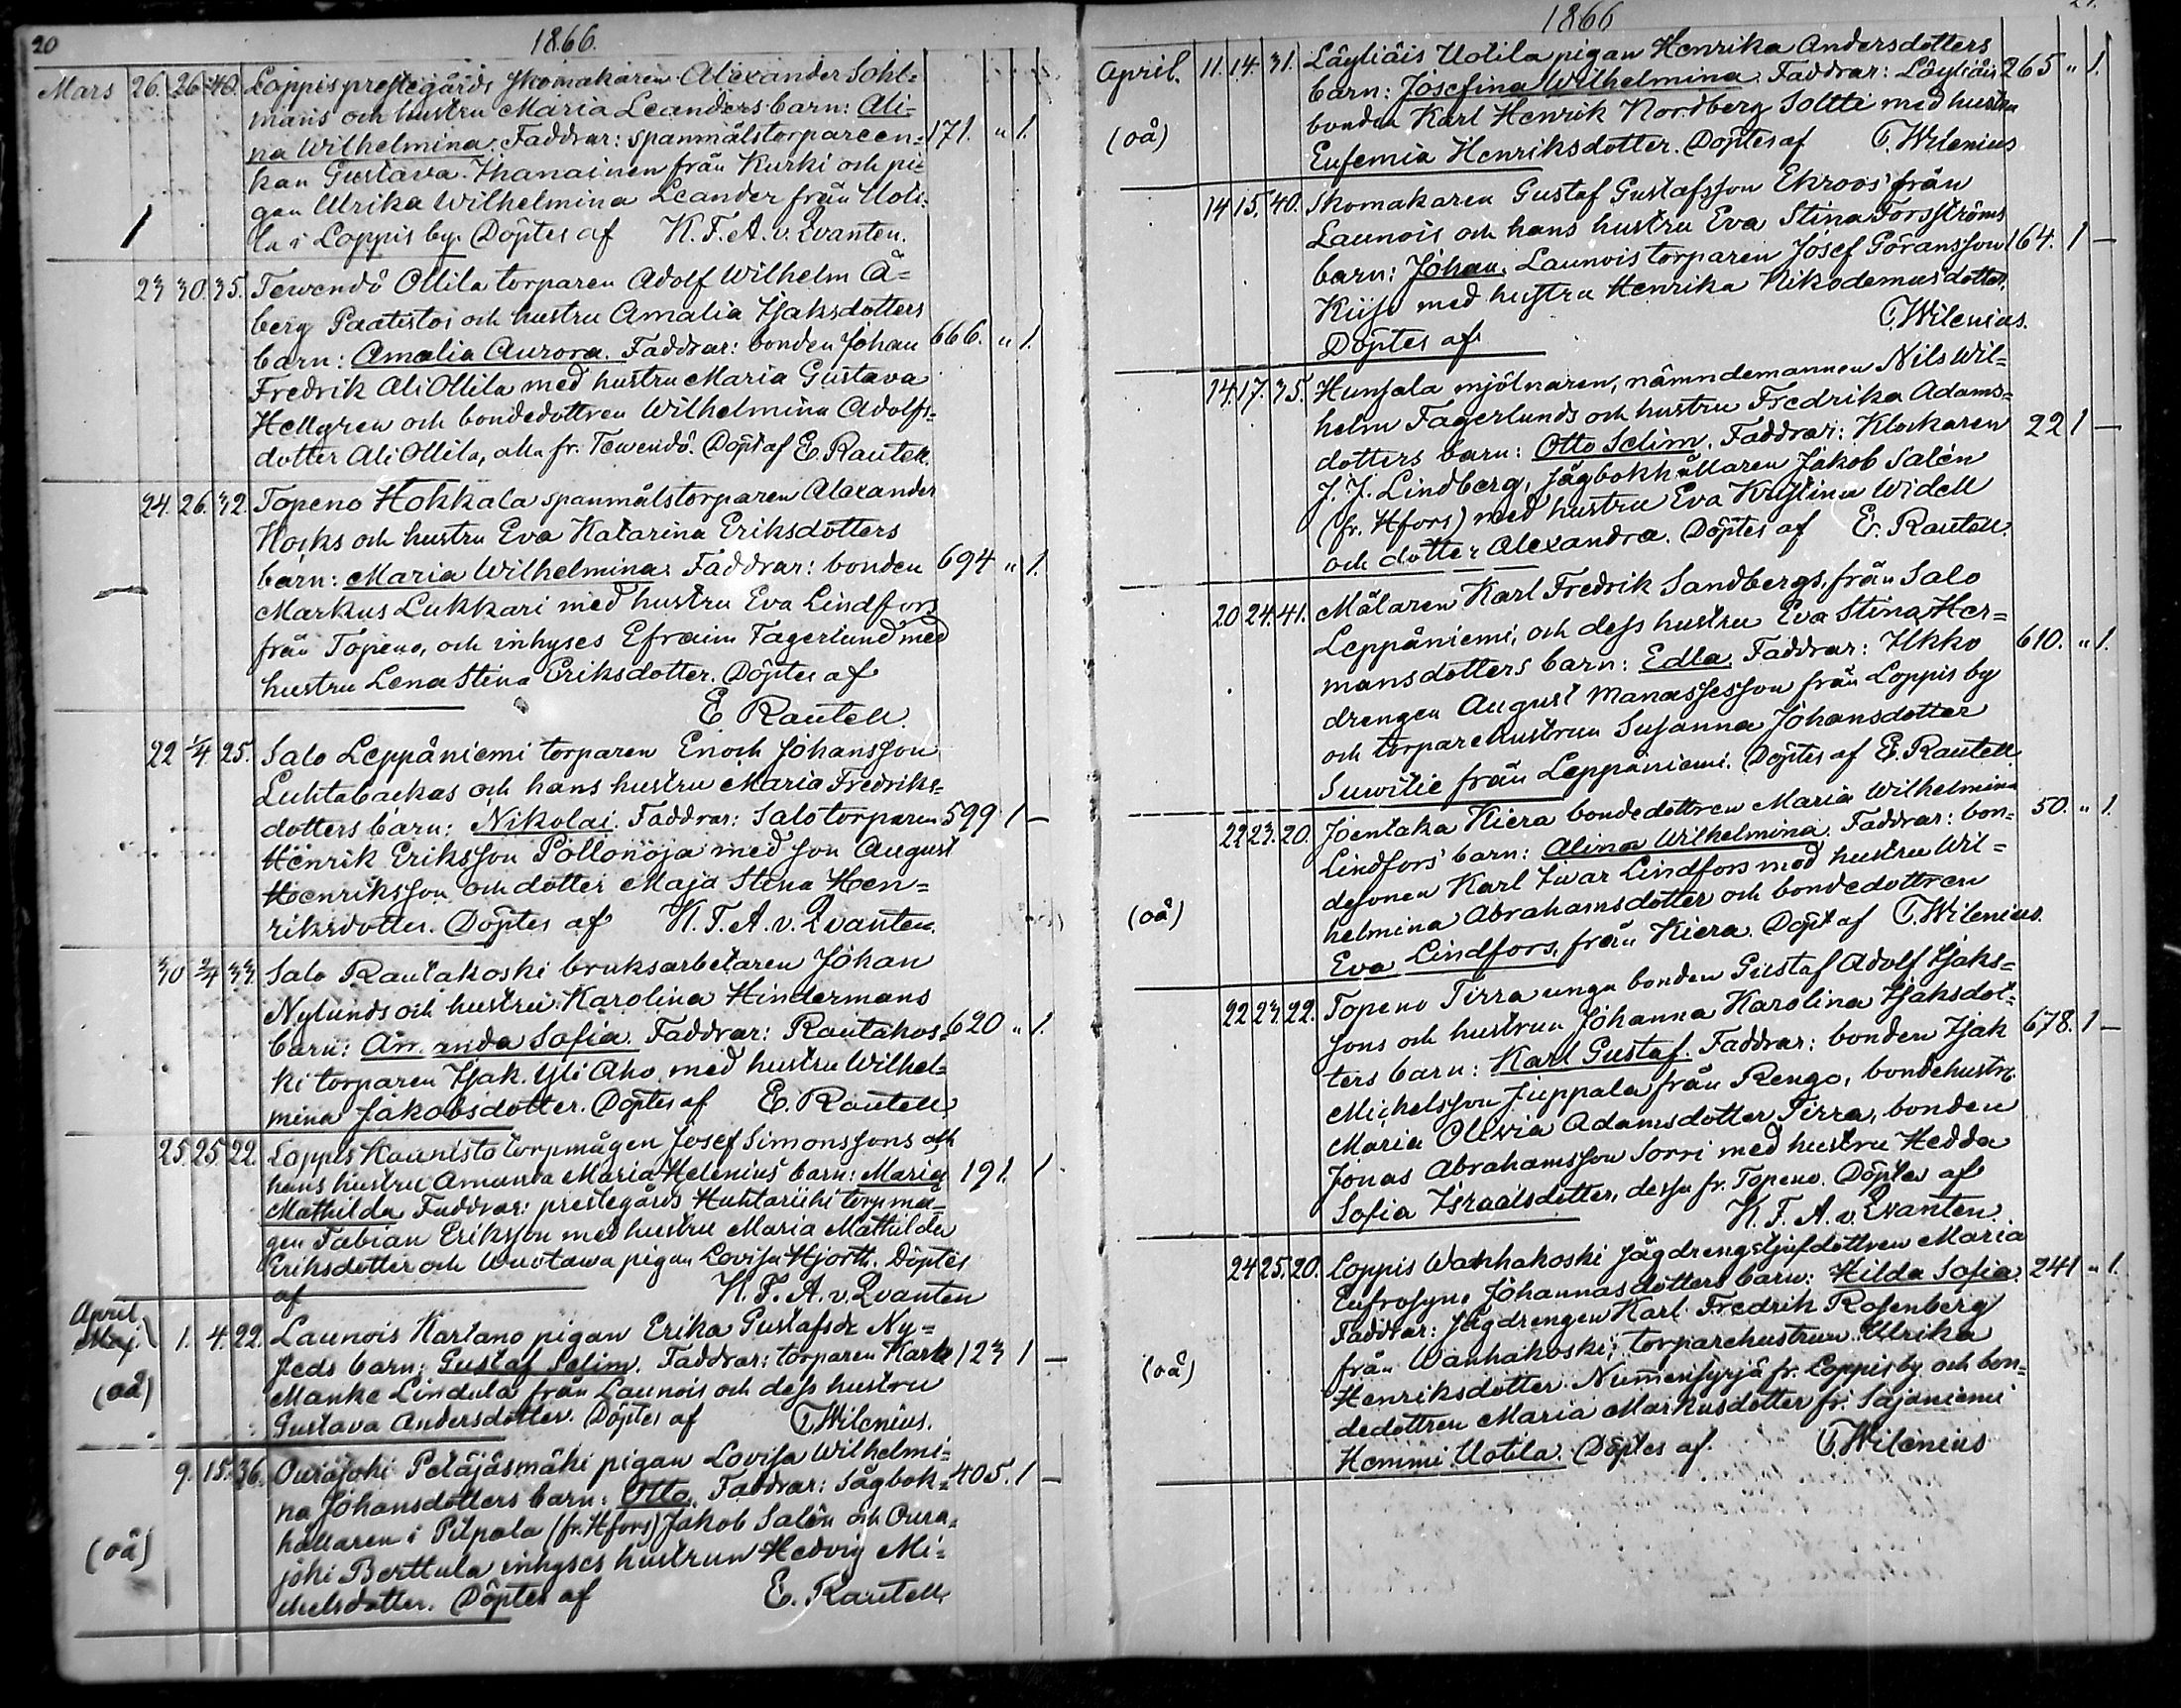 20
1866.
Mars 26. 26. 40. Loppis prestegårds skomakaren Alexander Sohl=
mans och hustru Maria Leanders barn: Ali=
na Wilhelmina. Faddrar: spanmålstorpareen= 171. " 1.
kan Gustava Ihanainen från Kurki och pi=
gan Ulrika Wilhelmina Leander från Uoti=
la i Loppis by. Döptes af K. F. A. v. Qvanten.
23 30. 35. Tewendö Ollila torparen Adolf Wilhelm Å=
berg Paatistos och hustru Amalia Isaksdotters
barn: Amalia Aurora. Faddrar: bonden Johan 666. " 1.
Fredrik Ali Ollila med hustru Maria Gustava
Hellgren och bondedottren Wilhelmina Adolfs=
dotter Ali Ollila, alla fr. Tewendö. Döpt af E. Rautell.
24. 26. 32. Topeno Hokkala spanmålstorparen Alexander
Kocks och hustru Eva Katarina Eriksdotters
barn: Maria Wilhelmina. Faddrar: bonden 694 " 1.
Markus Lukkari med hustru Eva Lindfors
från Topeno, och inhyses Efraim Fagerlund med
hustru Lena Stina Eriksdotter. Döptes af
E Rautell.
22 1/4 25. Salo Leppäniemi torparen Enoch Johansson
Luhtabackas och hans hustru Maria Fredriks=
dotters barn: Nikolai. Faddrar: Salo torparen 599 1 —
Henrik Eriksson Pollonoja med son August
Henriksson och dotter Maja Stina Hen=
riksdotter. Döptes af K. F. A. v. Qvanten.
30 2/4 33. Salo Rautakoski bruksarbetaren Johan
Nylunds och hustru Karolina Hindermans
barn: Armanda Sofia. Faddrar: Rautakos= 620 " 1.
ki torparen Isak Yli Aho med hustru Wilhel=
mina Jakobsdotter. Döptes af E. Rautell
25. 25. 22. Loppis Kaunisto torpmågen Josef Simonssons och
hans hustru Amanda Maria Helenius barn: Maria 191. 1
Mathilda Faddrar: prestegårds Huhtariihi torpmå=
gen Fabian Eriksson med hustru Maria Mathilda
Eriksdotter och Wuotawa pigan Lovisa Hjorth. Döptes
af K. F. A. v. Qvanten
April
Maj 1. 4. 22. Launois Kartano pigan Erika Gustafsdr Ny=
steds barn: Gustaf Selim. Faddrar: torparen Karl 123 1 —
(oä) Manke Lindula från Launois och dess hustru
Gustava Andersdotter. Döptes af T. Wilenius.
9. 15. 36. Ourajoki Petäjäsmäki pigan Lovisa Wilhelmi=
na Johansdotters barn: Otto. Faddrar: sågbok= 405. 1 —
hållaren i Pilpala (fr. Hfors) Jakob Salén och Oura=
(oä) joki Berttula inhyses hustrun Hedvig Mi=
chelsdotter. Döptes af E. Rautell.
1866
21.
April. 11. 14. 31. Läyliäis Uotila pigan Henrika Andersdotters
barn: Josefina Wilhelmina. Faddrar: Läyliäis 265 " 1.
bonden Karl Henrik Nordberg Soltti med hustru
(oä) Eufemia Henriksdotter. Döptes af T. Wilenius.
14 15. 40. Skomakaren Gustaf Gustafsson Ekroos' från
Launois och hans hustru Eva Stina Forsströms
barn: Johan. Launois torparen Josef Göransson 164. 1 —
Kiiso med hustru Henrika Nikodemusdotter.
Döptes af T. Wilenius.
14. 17. 35. Hunsala mjölnaren, nämndemannen Nils Wil=
helm Fagerlunds och hustru Fredrika Adams=
dotters barn: Otto Selim. Faddrar: Klockaren 22 1 —
J. J. Lindberg, sågbokhållaren Jakob Salén
(fr. Hfors) med hustru Eva Kristina Widell
och dotter Alexandra. Döptes af E. Rautell.
20 24. 41. Målaren Karl Fredrik Sandbergs, från Salo
Leppäniemi, och dess hustru Eva Stina Her=
mansdotters barn: Edla. Faddrar: Ilkko 610. " 1.
drengen August Manassesson från Loppis by
och torparehustrun Susanna Johansdotter
Suwitie från Leppäniemi. Döptes af E. Rautell
22 23. 20. Joentaka Kiera bondedottren Maria Wilhelmina
Lindfors' barn: Alina Wilhelmina. Faddrar: bon= 50. " 1.
desonen Karl Iwar Lindfors med hustru Wil=
helmina Abrahamsdotter och bondedottren
(oä) Eva Lindfors, från Kiera. Döpt af T. Wilenius.
22 23. 22. Topeno Tirra unga bonden Gustaf Adolf Isaks=
sons och hustrun Johanna Karolina Isaksdot=
ters barn: Karl Gustaf. Faddrar: bonden Isak 678. 1 —
Michelsson Juppala från Rengo, bondehustru
Maria Olivia Adamsdotter Tirra, bonden
Jonas Abrahamsson Sorri med hustru Hedda
Sofia Israelsdotter, dessa fr. Topeno. Döptes af
K. F. A. v. Qvanten.
24 25. 20. Loppis Wanhakoski sågdrengstjufdottren Maria
Eufrosyne Johannasdotters barn: Hilda Sofia. 241 " 1.
Faddrar: sågdrengen Karl Fredrik Rosenberg
från Wanhakoski; torparehustrun Ulrika
(oä) Henriksdotter Nummensyrjä fr. Loppis by och bon=
dedottren Maria Markusdotter fr. Sajaniemi
Hemmi Uotila. Döptes af T. Wilenius